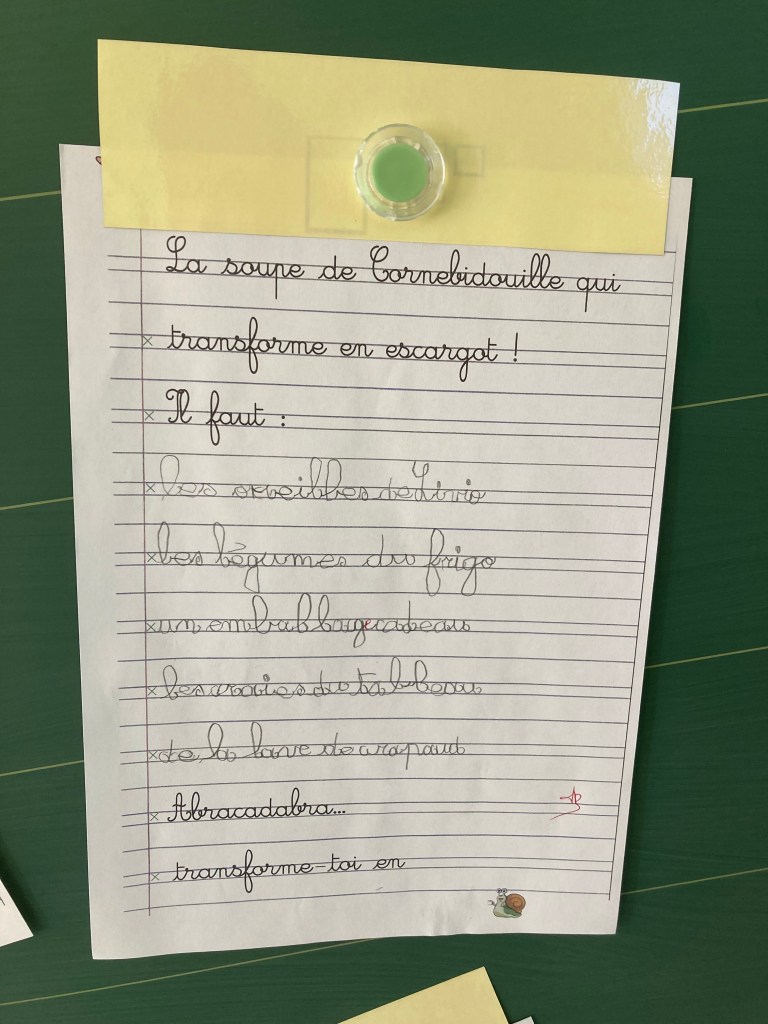 La soupe de Cornebidouille qui
transforme en escargot !
Il faut :
les oreilles de Livio
les légumes du frigo
un emballage cadeau
les craies du tableau
de la lave de crapaud
Abracadabra...
transforme-toi en